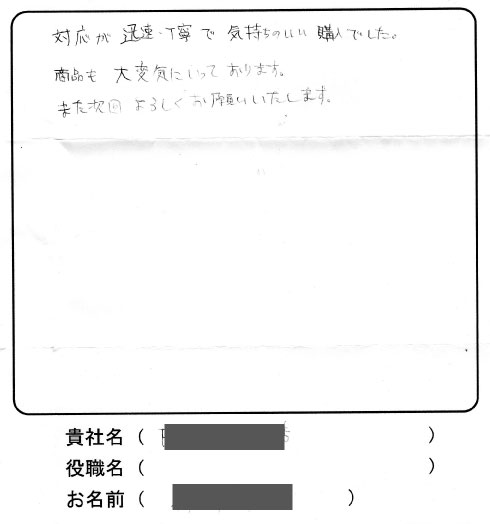 対応が迅速・丁寧で気持ちのいい購入でした。
商品も大変気にいっております。
また次回よろしくお願いいたします。
貴社名（　　　）
役職名（　　　）
お名前（　　　）